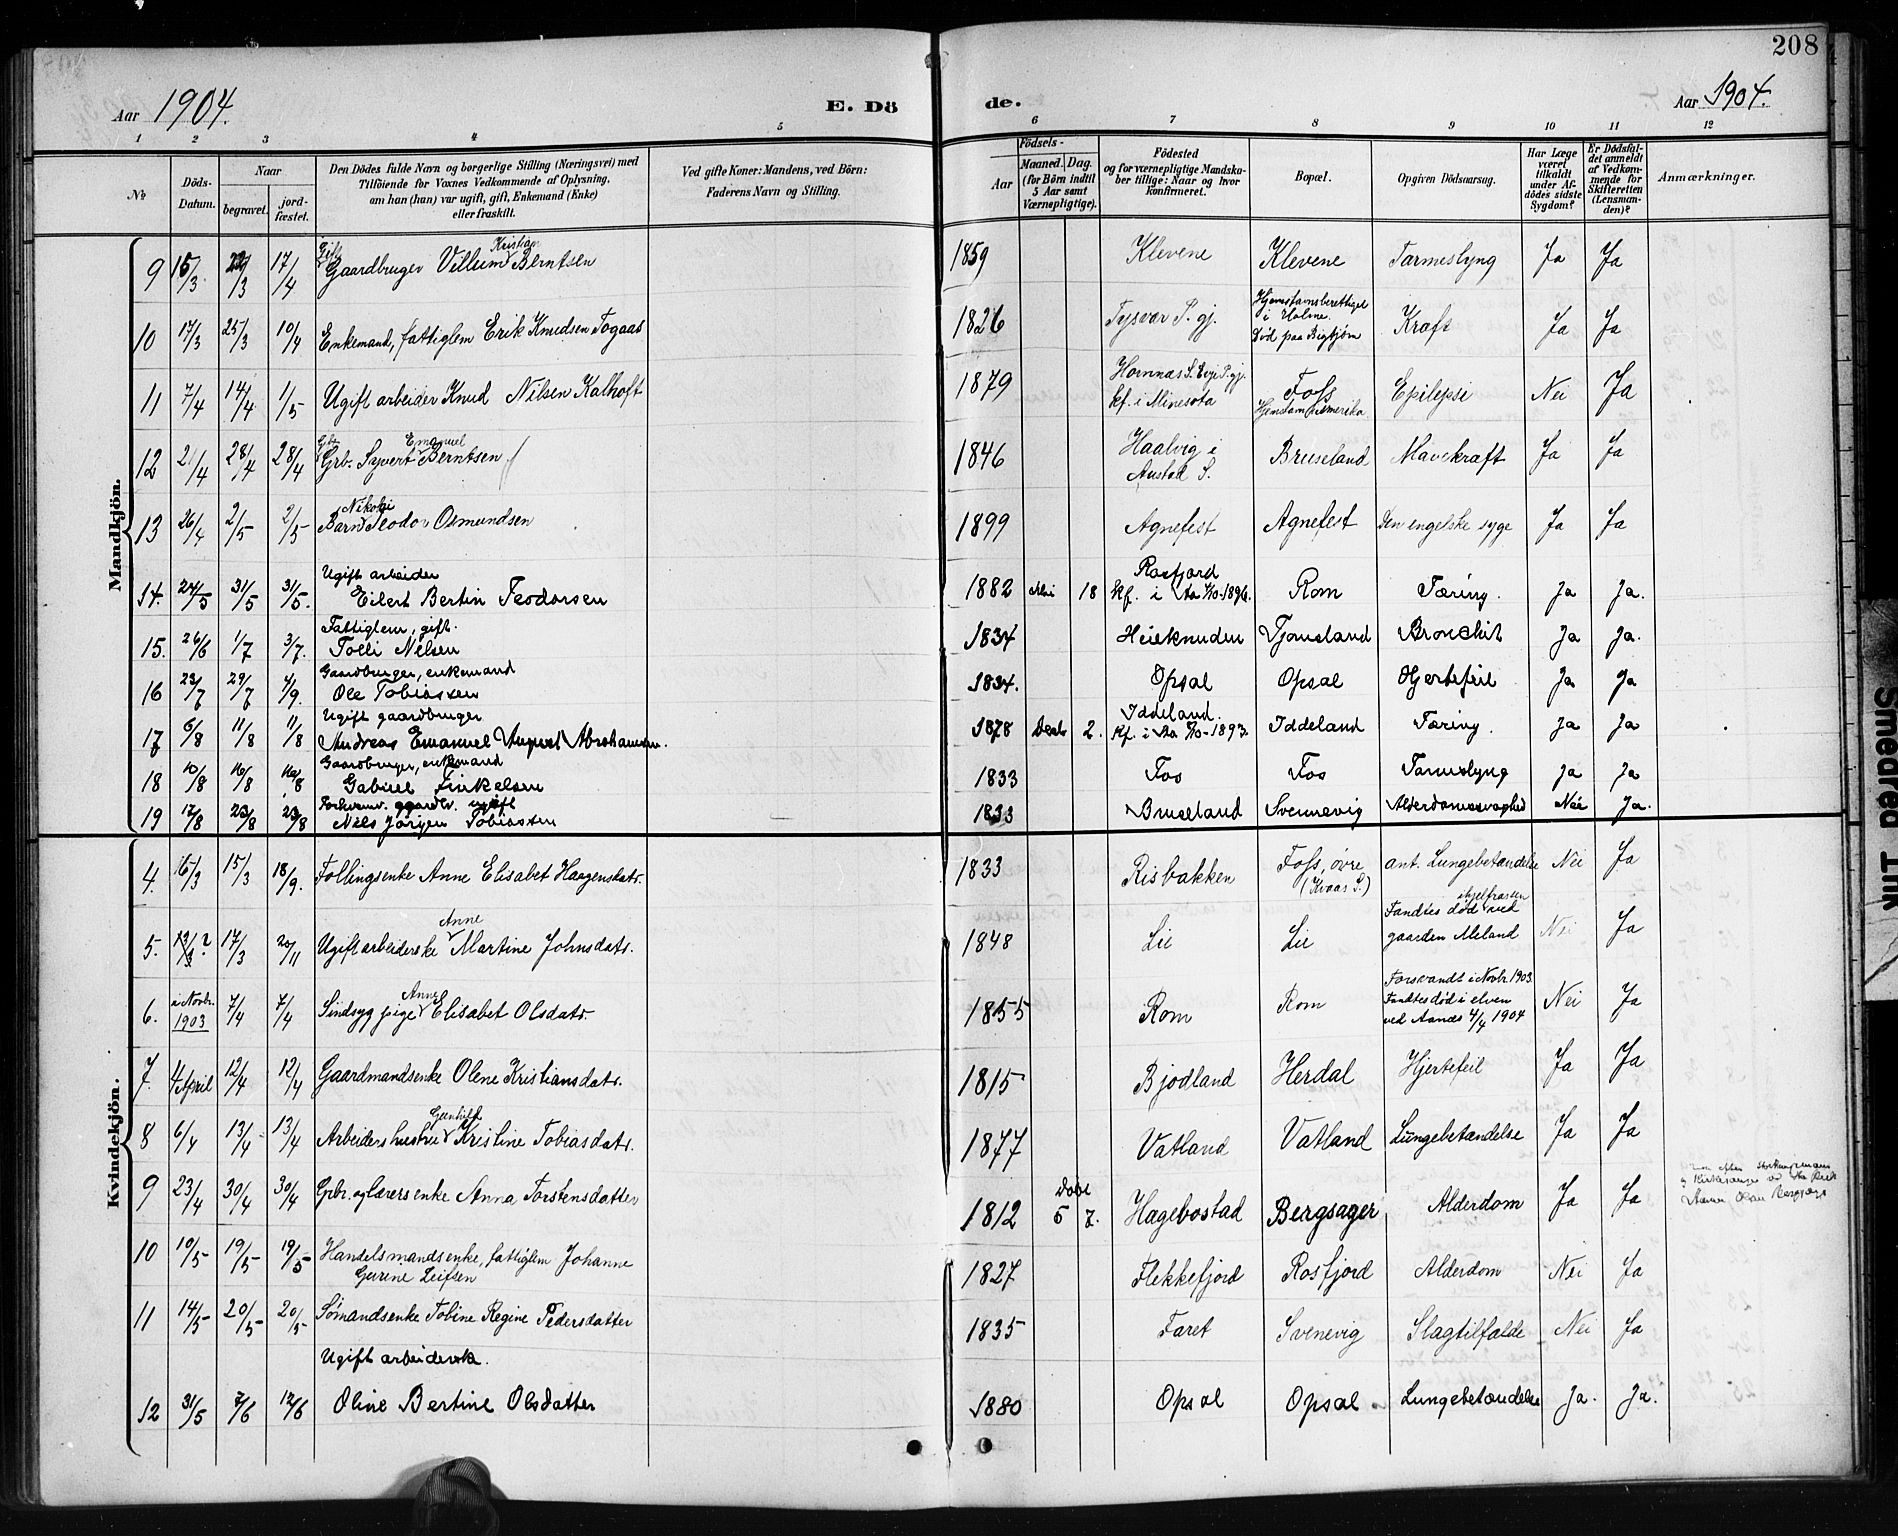 208
Aar 1904.
E. Dö
de.
Aar 1904.
1 2 3 4 5 6 7 8 9 10 11 12
№
Döds-
Datum.
Naar
begravet.
jord-
fæstet.
Den Dödes fulde Navn og borgerlige Stilling (Næringsvei) med
Tilföiende for Voxnes Vedkommende af Oplysning,
om han (hun) var ugift, gift, Enkemand (Enke)
eller fraskilt.
Ved gifte Koner: Mandens, ved Börn:
Faderens Navn og Stilling.
Födsels-
Aar
Maaned. Dag.
(for Börn indtil
5 Aar samt
Værnepligtige).
Födested
og for værnepligtige Mandska-
ber tillige: Naar og hvor
konfirmeret.
Bopæl.
Opgiven Dödsaarsag.
Har Læge
været
tilkaldt
under Af-
dödes sidste
Sygdom?
Er Dödsfal-
det anmeldt
af Vedkom-
mende for
Skifteretten
(Lensman-
den)?
Anmærkninger.
Mandkjön.
Gift Kristian
9 15/3 22/3 17/4 Gaardbruger Villum Berntsen 1859 Klevene Klevene Tarmeslyng Ja Ja
Hjemstamsberettiget
i Holme.
10 17/3 25/3 10/4 Enkemand, fattiglem Erik Knudsen Togaas 1826 Tysvar P. gj. Død paa Bigtjøm Kraft Ja Ja
Hornnas S. Evje P. gj.
11 7/4 14/4 1/5 Ugift arbeider Knud Nilsen Kalhoft 1879 kf. i Minesota Foss Epilepsi Nei Ja
Hjemstam i Amerika
Gbr. Emanuel
12 21/4 28/4 28/4 Grb. Syvert Berntsen 1846 Haalvig i
Austad S. Bruseland Mavekraft Ja Ja
Nikolai
13 26/4 2/5 2/5 Barn Teodor Osmundsen 1899 Agnefest Agnefest Den engelske syge Ja Ja
Ugift arbeider Rosfjord
14. 24/5 31/5 31/5. Eilert Bertin Teodorsen 1882 Mai 18 kf. i Aa 4/10-1896. Rom Tæring. Ja Ja.
Fattiglem, gift.
15. 26/6 1/7 3/7. Tolli Nilsen 1834 Heieknuden Tjomsland Bronchit Ja Ja.
Gaardbruger, enkemand
16 23/7 29/7 4/9. Ole Tobiassen 1834. Opsal Opsal Hjertefeil Ja Ja
Ugift gaardbruger Iddeland.
17 6/8 11/8 11/8 Andreas Emanuel August Abrahamsen. 1878 Decbr 2. kf. i Aa 1/10-1893. Iddeland Tæring. Ja Ja
Gaardbruger, enkemand
18 10/8 16/8 16/8 Gabriel Finkelsen 1833 Fos Fos Tarmeslyng Ja Ja
Forhenv. gaardbr. ugift
19 17/8 23/8 23/8 Nils Jørgen Tobiassen 1833 Bruseland Svennevig Alderdomssvaghed Nei Ja.
Kvindekjön.
4. 6/3 15/3 18/9. Follingsenke Anne Elisabet Haagensdatr. 1833 Risbakken Foss, øvre
(Kvaas S.) ant. Lungebetændelse Nei Ja
Anne
5. 13/3? 17/3 20/11 Ugift arbeiderske Martine Johnsdatr. 1848 Lie Lie Fandtes død ihjelfrossen ved
gaarden Meland Nei Ja
Anne
6. i Novbr.
1903 7/4 7/4 Sindsyg pige Elisabet Olsdatr. 1855 Rom Rom Forsvandt i Novbr. 1903.
Fandtes død i elven
ved Aanæs 4/4 1904 Nei Ja
7. April 12/4 12/4 Gaardmandsenke Olene Kristiansdatr. 1815 Bjodland Herdal Hjertefeil Ja Ja
Gunhild
8 6/4 13/4 13/4 Arbeidershustru Kristine Tobiasdatr. 1877 Vatland Vatland Lungebetændelse Ja Ja
9 23/4 30/4 30/4 Gbr. og lærersenke Anna Torstensdatter 1812 Døbt
5 7. Hægebostad Bergsager Alderdom Ja Ja
10 10/5 19/5 19/5 Handelsmandsenke, fattiglem Johanne
Gurine Leifsen 1827 Flekkefjord Rosfjord Alderdom Nei Ja
11 14/5 20/5 20/5 Sømandsenke Tobine Regine Pedersdatter 1835 Faret Svenevig Slagtilfælde Nei Ja
Ugift arbeiderske.
12 31/5 7/6 12/6 Oline Bertine Olsdatter 1880 Opsal Opsal Lungebetændelse Ja. Ja.
Smeared Ink